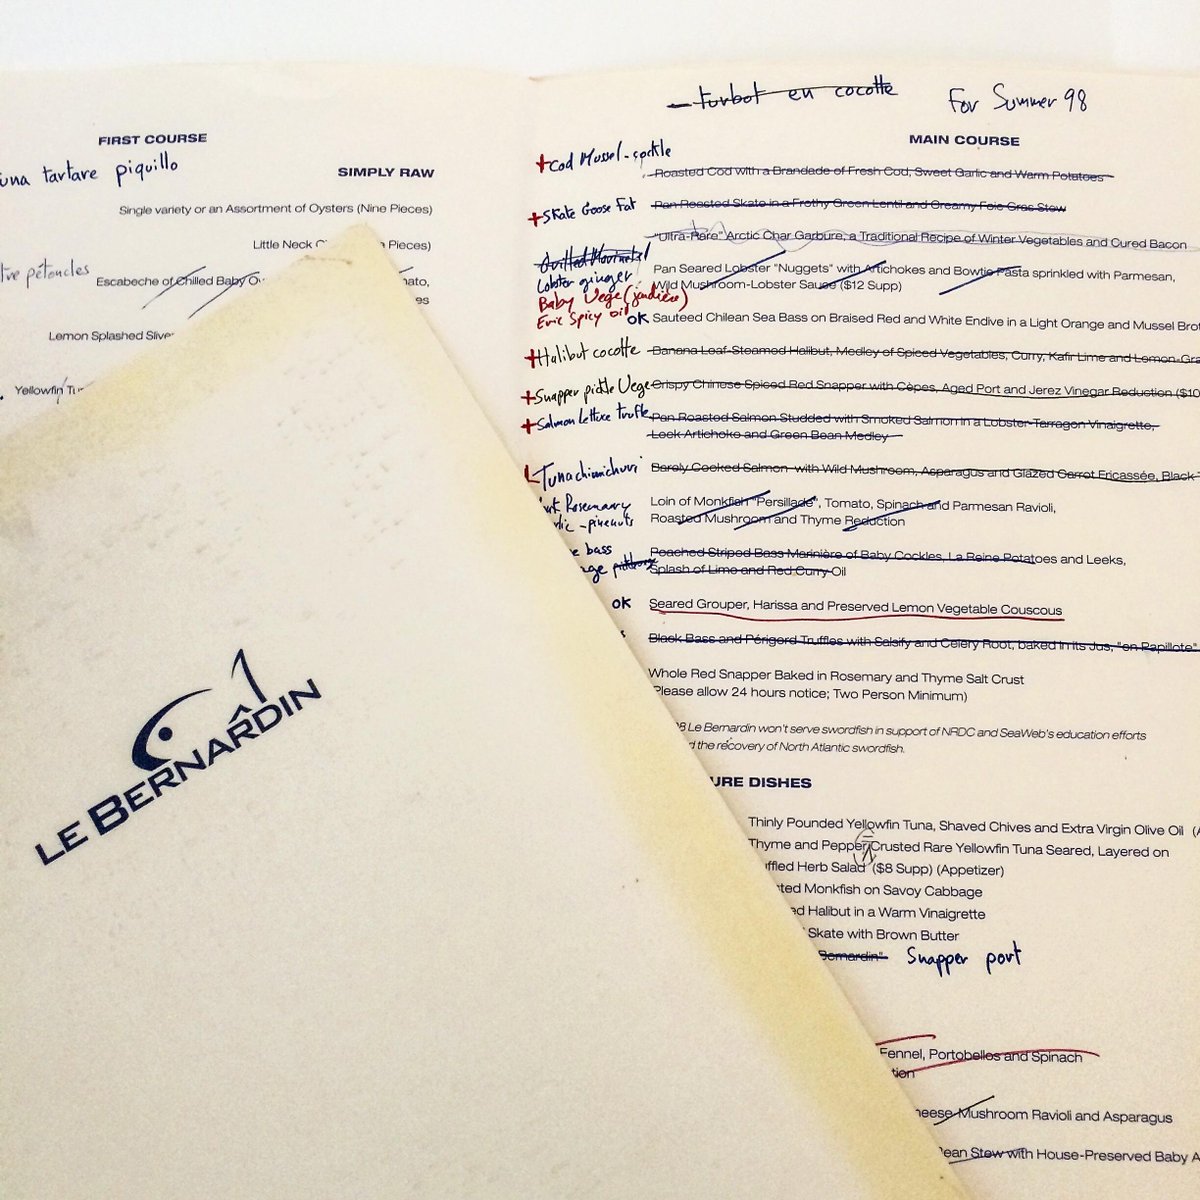 FIRST COURSE
una tartare piquillo
SIMPLY RAW
Single variety or an Assortment of Oysters (Nine Pieces)
Little Neck Pieces)
tre pétoncles
Escabeche of Chilled Baby
Lemon Splashed
Yellowfin
LE BERNARDIN
turbot en cocotte
For Summer 98
MAIN COURSE
+Cod Mussel-cockle
Roasted Cod with a Brandade of Fresh Cod, Sweet Garlic and Warm Potatoes
+Skate Goose Fat
Pan Roasted Skate in a Frothy Green Lentil and Creamy Foie Gras Stew
"Ultra-Rare" Arctic Char Garbure, a Traditional Recipe of Winter Vegetables and Cured Bacon
Lobster ginger
Pan Seared Lobster "Nuggets" with Artichokes and Bowtie Pasta sprinkled with Parmesan,
Wild Mushroom-Lobster Sauce ($12 Supp)
Baby Vege (jardinière)
Eric Spicy oil
OK Sauteed Chilean Sea Bass on Braised Red and White Endive in a Light Orange and Mussel Brot
+Halibut cocotte
Banana Leaf-Steamed Halibut, Medley of Spiced Vegetables, Curry, Kafir Lime and Lemon-Gra
+Snapper pickle Vege
Crispy Chinese Spiced Red Snapper with Cèpes, Aged Port and Jerez Vinegar Reduction ($10
+Salmon lettice truffe
Pan Roasted Salmon Studded with Smoked Salmon in a Lobster-Tarragon Vinaigrette,
Leek Artichoke and Green Bean Medley
Tuna chimichuri
Barely Cooked Salmon with Wild Mushroom, Asparagus and Glazed Carrot Fricassée, Black
Rosemary
Loin of Monkfish "Persillade", Tomato, Spinach and Parmesan Ravioli,
-pinenuts
Roasted Mushroom and Thyme Reduction
bass
Poached Striped Bass Marinière of Baby Cockles, La Reine Potatoes and Leeks,
Splash of Lime and Red Curry Oil
OK Seared Grouper, Harissa and Preserved Lemon Vegetable Couscous
Black Bass and Périgord Truffles with Salsify and Celery Root, baked in its Jus, "en Papillote"
Whole Red Snapper Baked in Rosemary and Thyme Salt Crust
Please allow 24 hours notice; Two Person Minimum)
8 Le Bernardin won't serve swordfish in support of NRDC and SeaWeb's education efforts
d the recovery of North Atlantic swordfish.
URE DISHES
Thinly Pounded Yellowfin Tuna, Shaved Chives and Extra Virgin Olive Oil (A
Thyme and Pepper Crusted Rare Yellowfin Tuna Seared, Layered on
uffled Herb Salad ($8 Supp) (Appetizer)
ted Monkfish on Savoy Cabbage
ed Halibut in a Warm Vinaigrette
Skate with Brown Butter
Bernardin" Snapper port
Fennel, Portobellos and Spinach
tion
heese-Mushroom Ravioli and Asparagus
ean Stew with House-Preserved Baby A